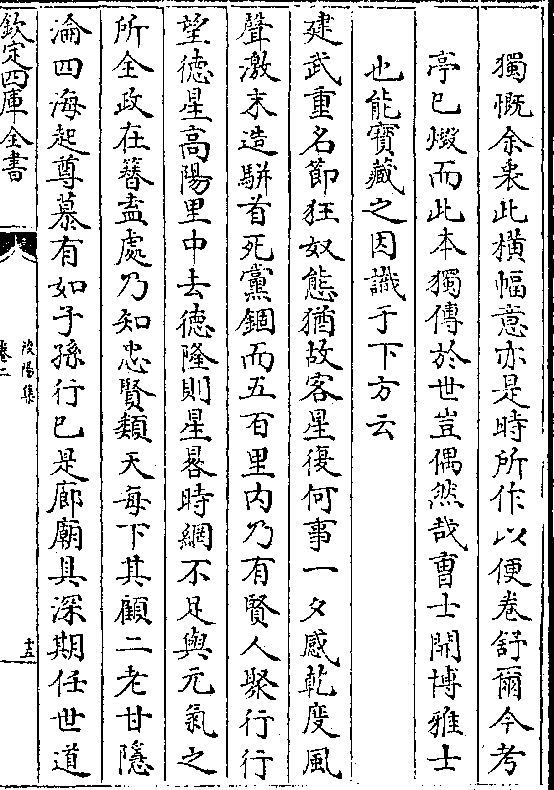 獨慨余裘此横幅意亦是時所作以便卷舒爾今考
亭已燬而此本獨傳於世豈偶然哉曺士開博雅士
也能寳藏之因識于下方云
建武重名節狂奴態猶故客星復何事一夕感乾度風
聲激末造駢首死黨錮而五百里内乃有賢人聚行行
望徳星高陽里中去徳隆則星晷時網不足與元氣之
所全政在簮盍處乃知忠賢類天每下其顧二老甘隱
淪四海起尊慕有如子孫行已是廊廟具深期任世道
欽定四庫全書
洨陽集
卷二
十五